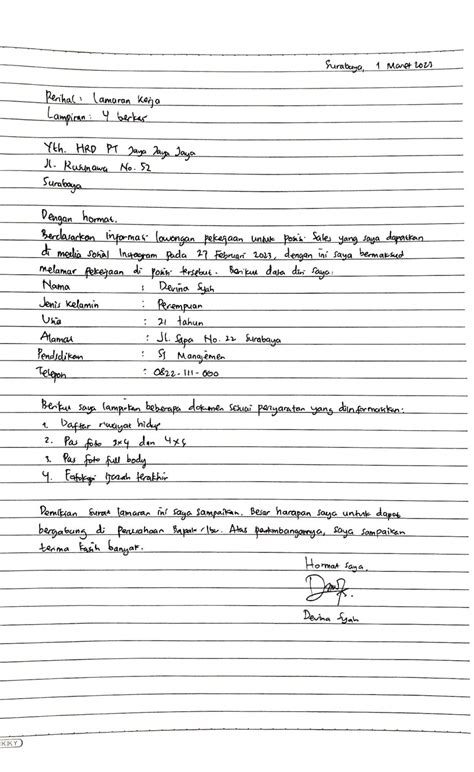 Surabaya, 1 Maret 2023
Perihal : Lamaran Kerja
Lampiran : 4 berkas
Yth. HRD PT Jaya Jaya Jaya
Jl. Kusmawa No. 52
Surabaya
Dengan hormat.
Berdasarkan informasi lowongan pekerjaan untuk posisi Sales yang saya dapatkan
di media sosial Instagram pada 27 Februari 2023, dengan ini saya bermaksud
melamar pekerjaan di posisi tersebut. Berikut data diri saya:
Nama : Devina Syah
Jenis Kelamin : Perempuan
Usia : 21 tahun
Alamat : Jl. Sapa No. 22 Surabaya
Pendidikan : S1 Manajemen
Telepon : 0822-111-000
Berikut saya lampirkan beberapa dokumen sesuai persyaratan yang diinformasikan:
1. Daftar riwayat hidup
2. Pas foto 3x4 dan 4x6
3. Pas foto full body
4. Fotokopi ijazah terakhir
Demikian surat lamaran ini saya sampaikan. Besar harapan saya untuk dapat
bergabung di perusahaan Bapak/Ibu. Atas pertimbangannya, saya sampaikan
terima kasih banyak.
Hormat saya,
Devina Syah
KIKY